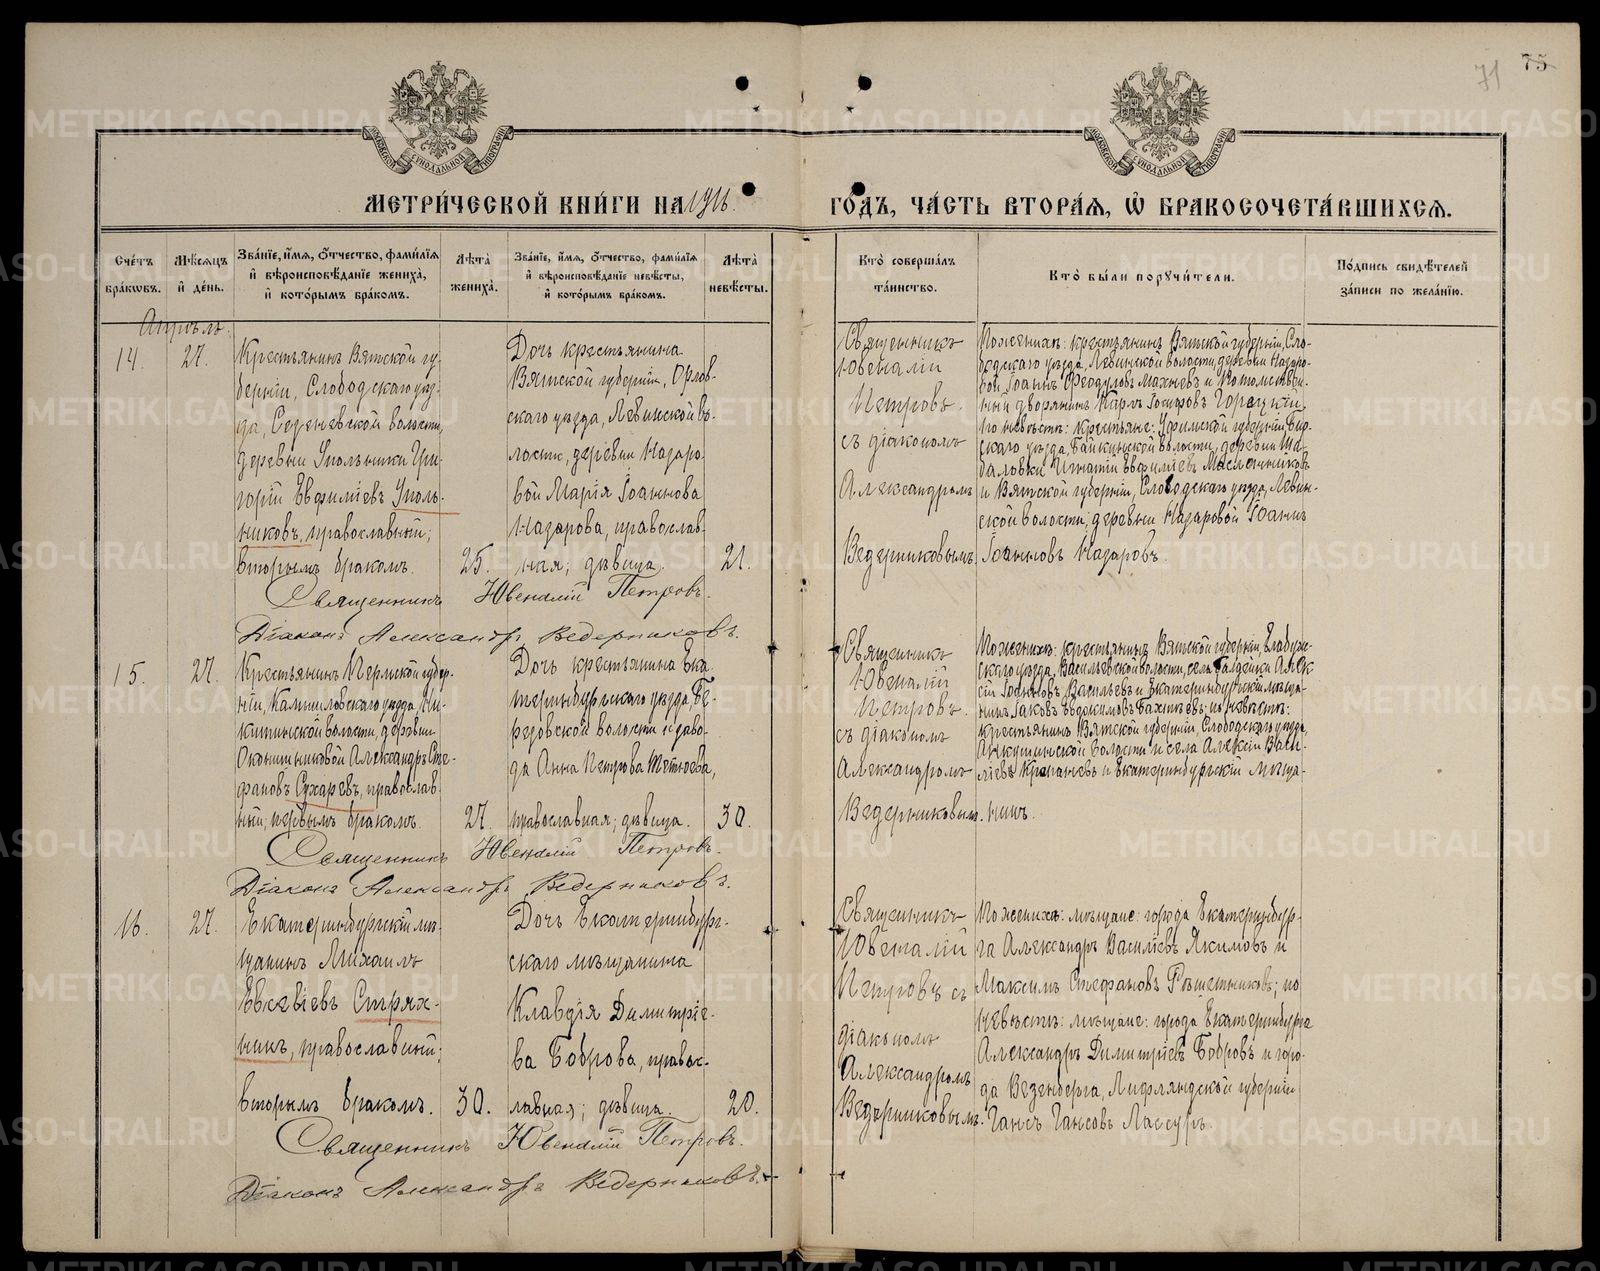 71 75
МОСКОВСКОЙ СУНОДАЛЬНОЙ ТИПОГРАФІИ
МОСКОВСКОЙ СУНОДАЛЬНОЙ ТИПОГРАФІИ
МЕТРИ́ЧЕСКОЙ КНИ́ГИ НА 1916.
ГО́ДЪ, ЧА́СТЬ ВТОРА́Я, Ѽ БРАКОСОЧЕТА́ВШИХСЯ.
Сче́тъ бра́кѡвъ.
Мѣ́сяцъ и҆ де́нь.
Зва́нїе, и҆́мя, ѻ҆́тчество, фами́лїя
и҆ вѣроисповѣ́данїе жениха̀,
и҆ кото́рымъ бра́комъ.
Лѣ́та жениха̀.
Зва́нїе, и҆́мя, ѻ҆́тчество, фами́лїя
и҆ вѣроисповѣ́данїе невѣ́сты,
и҆ кото́рымъ бра́комъ.
Лѣ́та невѣ́сты.
Кто̀ соверша́лъ та́инство.
Кто̀ бы́ли поручи́тели.
По́дпись свидѣ́телей
за́писи по жела́нїю.
Апрѣль.
14.
27.
Крестьянинъ Вятской гу-
берніи, Слободскаго уѣз-
да, Сезеневской волости,
деревни Упольники Гри-
горій Евфиміевъ Уполь-
никовъ, православный;
вторымъ бракомъ.
25.
Дочь крестьянина
Вятской губерніи, Орлов-
скаго уѣзда, Левинской во-
лости, деревни Назаро-
вой Марія Іоаннова
Назарова, православ-
ная; дѣвица.
21.
Священникъ
Ювеналій
Петровъ
съ діакономъ
Александромъ
Ведерниковымъ.
По женихѣ: крестьянинъ Вятской губерніи, Сло-
бодскаго уѣзда, Левинской волости, деревни Назаро-
вой Іоаннъ Феодуловъ Махневъ и потомствен-
ный дворянинъ Карлъ Іосифовъ Горецкій
По невѣстѣ: крестьяне: Уфимской губерніи, Бир-
скаго уѣзда, Байкинской волости, деревни Ша-
баловки Игнатій Евфиміевъ Масленниковъ
и Вятской губерніи, Слободскаго уѣзда, Левин-
ской волости, деревни Назаровой Іоаннъ
Іоанновъ Назаровъ.
Священникъ Ювеналій Петровъ.
Діаконъ Александръ Ведерниковъ.
15.
27.
Крестьянинъ Пермской губер-
ніи, Камышловскаго уѣзда, Ни-
китинской волости, деревни
Оконишниковой Александръ Сте-
фановъ Сухаревъ, православ-
ный; первымъ бракомъ.
27.
Дочь крестьянина Ека-
теринбургскаго уѣзда, Бе-
резовской волости и заво-
да Анна Петрова Тетюева,
православная; дѣвица.
30.
Священникъ
Ювеналій
Петровъ
съ діакономъ
Александромъ
Ведерниковымъ.
По женихѣ: крестьянинъ Вятской губерніи, Елабуж-
скаго уѣзда, Васильевской волости, села Алек-
сій Іоанновъ Васильевъ и Екатеринбургскій мѣща-
нинъ Іаковъ Евдокимовъ Бахтѣевъ; по невѣстѣ:
крестьянинъ Вятской губерніи, Слободскаго уѣзда,
Анкушинской волости и села Алексій Васи-
ліевъ и Екатеринбургскій мѣща-
нинъ.
Священникъ Ювеналій Петровъ.
Діаконъ Александръ Ведерниковъ.
16.
27.
Екатеринбургскій мѣ-
щанинъ Михаилъ
Евсевіевъ Стряж-
нинъ, православный;
вторымъ бракомъ.
30.
Дочь Екатеринбург-
скаго мѣщанина
Клавдія Димитріе-
ва Боброва, правос-
лавная; дѣвица.
20.
Священникъ
Ювеналій
Петровъ съ
діакономъ
Александромъ
Ведерниковымъ.
По женихѣ: мѣщане: города Екатеринбур-
га Александръ Василіевъ Якимовъ и
Максимъ Стефановъ Рѣшетниковъ; по
невѣстѣ: мѣщане: города Екатеринбурга
Александръ Димитріевъ Бобровъ и горо-
да Везенберга, Лифляндской губерніи
Гансъ Гансовъ Лассуръ.
Священникъ Ювеналій Петровъ.
Діаконъ Александръ Ведерниковъ.
METRIKI.GASO-URAL.RU